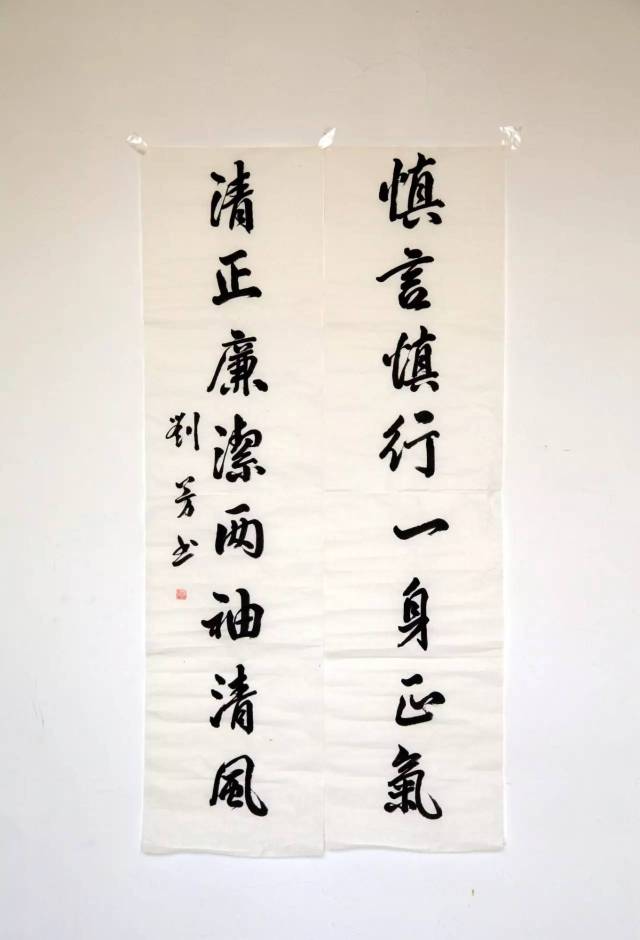 慎言慎行一身正氣
清正廉潔两袖清風
劉芳书